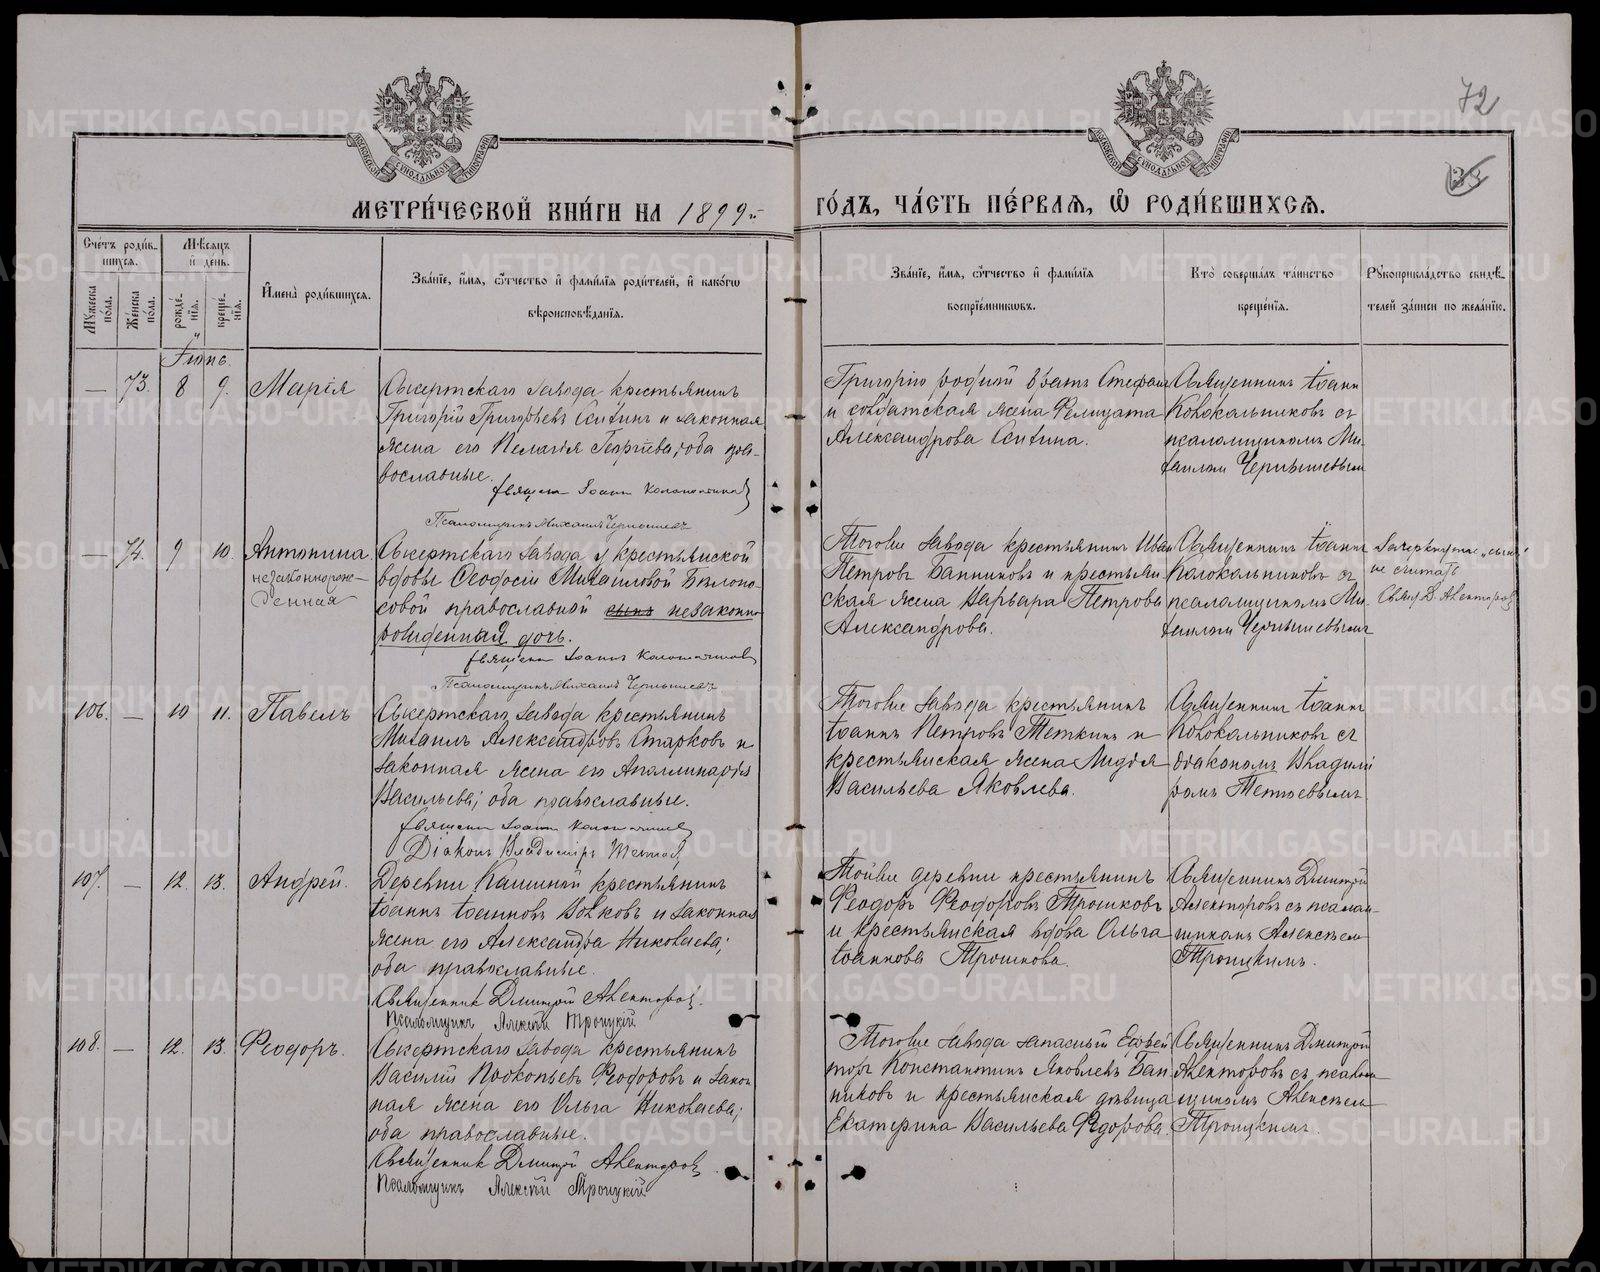 72
МЕТРИЧЕСКОЙ КНИГИ НА 1899й ГОДЪ, ЧАСТЬ ПЕРВАЯ, Ѡ РОДИВШИХСЯ.
Счетъ родив-
шихся.
Мужеска пола.
Женска пола.
Мѣсяцъ и день.
рожде-
нія.
креще-
нія.
Имена родившихся.
Званіе, имя, ѻтчество и фамилія родителей, и какогѡ
вѣроисповѣданія.
Званіе, имя, ѻтчество и фамилія
воспріемниковъ.
Кто совершалъ таинство
крещенія.
Рукоприкладство свидѣ-
телей записи по желанію.
Іюнь.
— 73. 8 9. Марія
Сысертскаго завода крестьянинъ
Григорій Григорьевъ и законная
жена его Пелагія Георгіева; оба пра-
вославные.
Священ Іоаннъ Колокольников
Псаломщикъ Михаилъ Чернышевъ
Григорію родной братъ Стефан
и солдатская жена Фелицата
Александрова
Священникъ Іоанн
Колокольниковъ съ
псаломщикомъ Ми-
хаиломъ Чернышевымъ
— 74. 9 10. Антонина
незаконнорож-
денная
Сысертскаго завода у крестьянской
вдовы Ѳеодосіи Михаиловой Бѣлоно-
совой православной сынъ незаконно
рожденная дочь.
Священ Іоаннъ Колокольников
Псаломщикъ Михаилъ Чернышевъ
Тогоже завода крестьянинъ Иван
Петровъ Банниковъ и крестьян
ская жена Варвара Петрова
Александрова.
Священникъ Іоаннъ
Колокольниковъ съ
псаломщикомъ Ми-
хаиломъ Чернышевымъ
Зачеркнутое „сынъ"
не считать
Свящ. Д. Алекторов
106. — 10 11. Павелъ
Сысертскаго завода крестьянинъ
Михаилъ Александровъ Старковъ и
законная жена его Аполлинарія
Васильева; оба православные.
Священ Іоаннъ Колокольников
Діаконъ Владиміръ
Тогоже завода крестьянинъ
Іоаннъ Петровъ Теткинъ и
крестьянская жена Лидія
Васильева Яковлева.
Священникъ Іоаннъ
Колокольниковъ съ
діакономъ Владимі
ромъ
107. — 12. 13. Андрей.
Деревни Кашиной крестьянинъ
Іоаннъ Іоанновъ Волковъ и законная
жена его Александра Николаева;
оба православные.
Священникъ Дмитрій Алекторов.
Псаломщикъ Алексѣй Троицкій
Тойже деревни крестьянинъ
Ѳеодоръ Ѳеодоровъ Трошковъ
и крестьянская вдова Ольга
Іоаннова Трошкова.
Священникъ Дмитрій
Алекторовъ съ псалом-
щикомъ Алексѣем
Троицкимъ.
108. — 12. 13. Ѳеодоръ.
Сысертскаго завода крестьянинъ
Василій Прокопьевъ Ѳеодоровъ и закон
ная жена его Ольга Николаева;
оба православные.
Священникъ Дмитрій Алекторов
Псаломщикъ Алексѣй Троицкій
Тогоже завода запасный Ефрей
торъ Константинъ Яковлевъ Бан
никовъ и крестьянская дѣвица
Екатерина Васильева Ѳедорова.
Священникъ Дмитрій
Алекторовъ съ псалом
щикомъ Алексѣем
Троицкимъ.
METRIKI.GASO-URAL.RU